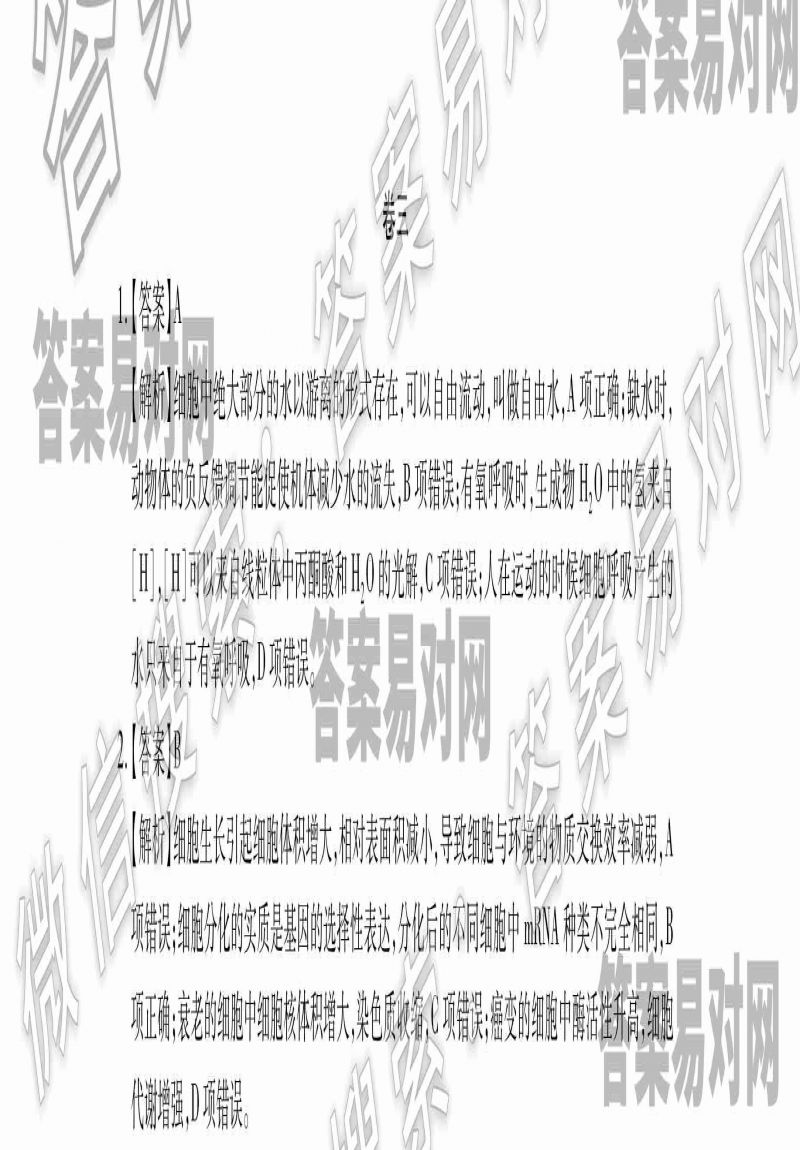 卷三
1.【答案】A
【解析】细胞中绝大部分的水以游离的形式存在,可以自由流动,叫做自由水,A项正确;缺水时,
动物体的负反馈调节能促使机体减少水的流失,B项错误;有氧呼吸时,生成物H₂O中的氢来自
[H],[H]可以来自线粒体中丙酮酸和H₂O的光解,C项错误;人在运动的时候细胞呼吸产生的
水只来自于有氧呼吸,D项错误。
2.【答案】B
【解析】细胞生长引起细胞体积增大,相对表面积减小,导致细胞与环境的物质交换效率减弱,A
项错误;细胞分化的实质是基因的选择性表达,分化后的不同细胞中mRNA种类不完全相同,B
项正确;衰老的细胞中细胞核体积增大,染色质收缩,C项错误;癌变的细胞中酶活性升高,细胞
代谢增强,D项错误。
答案易对网
答案易对网
答案易对网
答案易对网
微信搜索:答案易对网